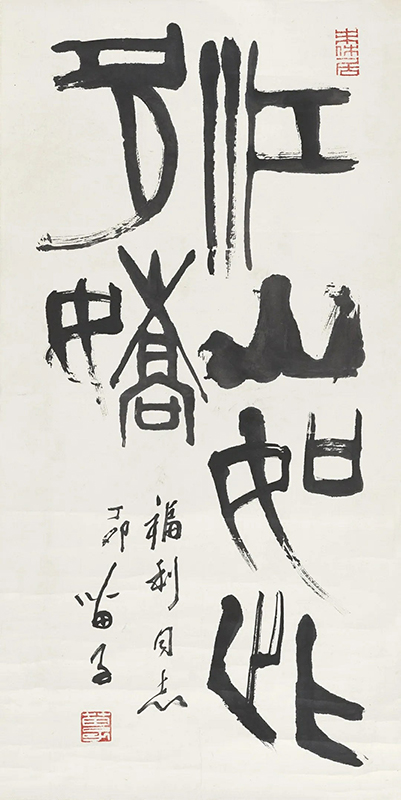 江山如此
多嬌
福利同志
丁卯 苗子